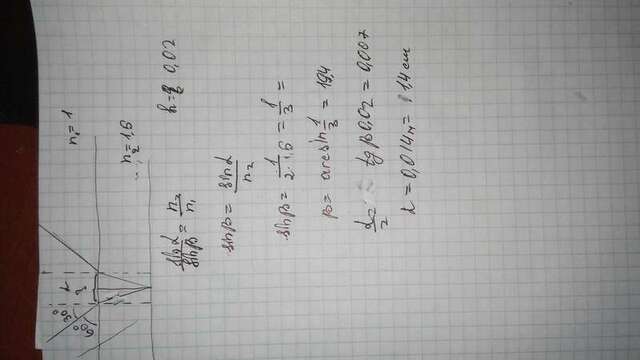 n₁ = 1
n₂ = 1,6
h = 0,02
sin α / sin β = n₂ / n₁
sin β = sin α / n₂
sin β = 1 / 2·1,6 = 1/3 =
β = arcsin 1/3 = 19,4
/2 = tg β 0,02 = 0,007
= 0,014 м = 1,4 см
30°
60°